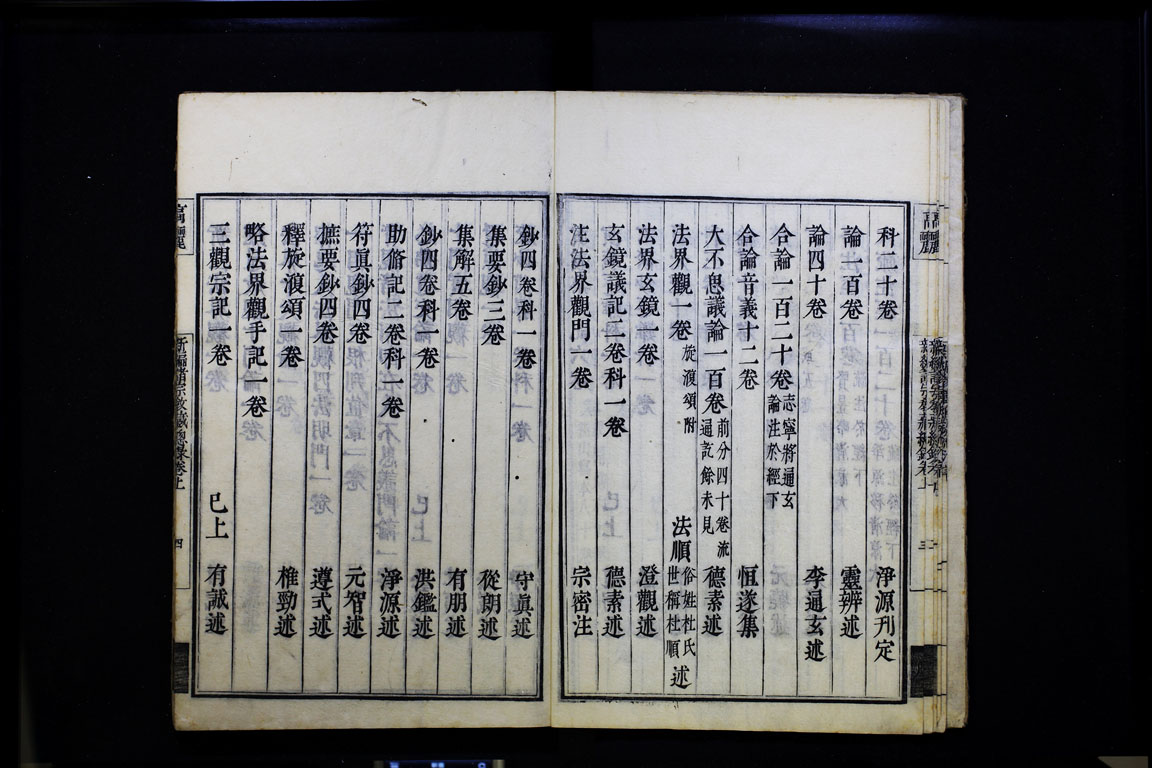 科二十卷 淨源刊定
論一百卷 靈辨述
論四十卷 李通玄述
合論一百二十卷 志寧將通玄論注於經下
合論音義十二卷 恒遂集
大不思議論一百卷 前分四十卷流通訖餘未見 德素述
法界觀一卷 旋澓頌附 法順 俗姓杜氏世稱杜順 述
法界玄鏡一卷 澄觀述
玄鏡議記二卷科一卷 已上 德素述
注法界觀門一卷 宗密注
鈔四卷科一卷 守眞述
集要鈔三卷 從朗述
集解五卷 有朋述
鈔四卷科一卷 洪鑑述
助脩記二卷科一卷 淨源述
符眞鈔四卷 元智述
摭要鈔四卷 遵式述
釋旋澓頌一卷 惟勁述
略法界觀手記一卷
三觀宗記一卷 已上 有誠述
高麗
新編諸宗教藏總錄卷上
四